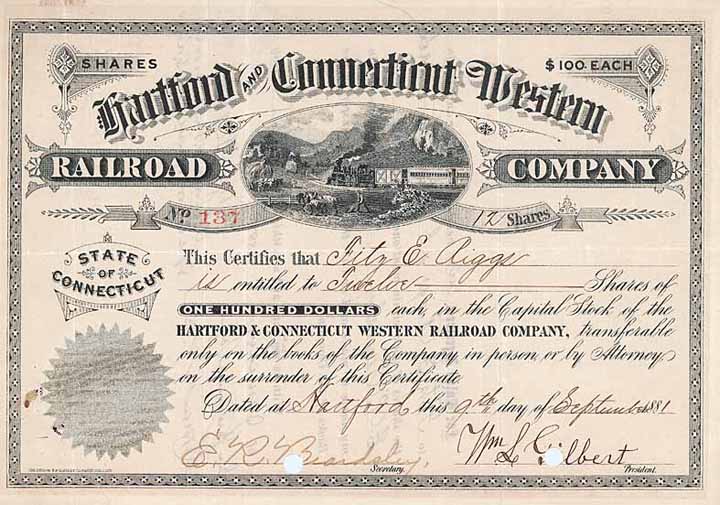 SHARES $100 EACH
Hartford AND Connecticut Western
RAILROAD COMPANY
No 137 12 Shares
STATE
OF
CONNECTICUT
This Certifies that Fitz E. Riggs
is entitled to Twelve Shares of
ONE HUNDRED DOLLARS each, in the Capital Stock of the
HARTFORD & CONNECTICUT WESTERN RAILROAD COMPANY, transferable
only on the books of the Company in person, or by Attorney
on the surrender of this Certificate
Dated at Hartford this 9th day of September 1881
E. R. Beardsley, Wm L Gilbert
Secretary. President.